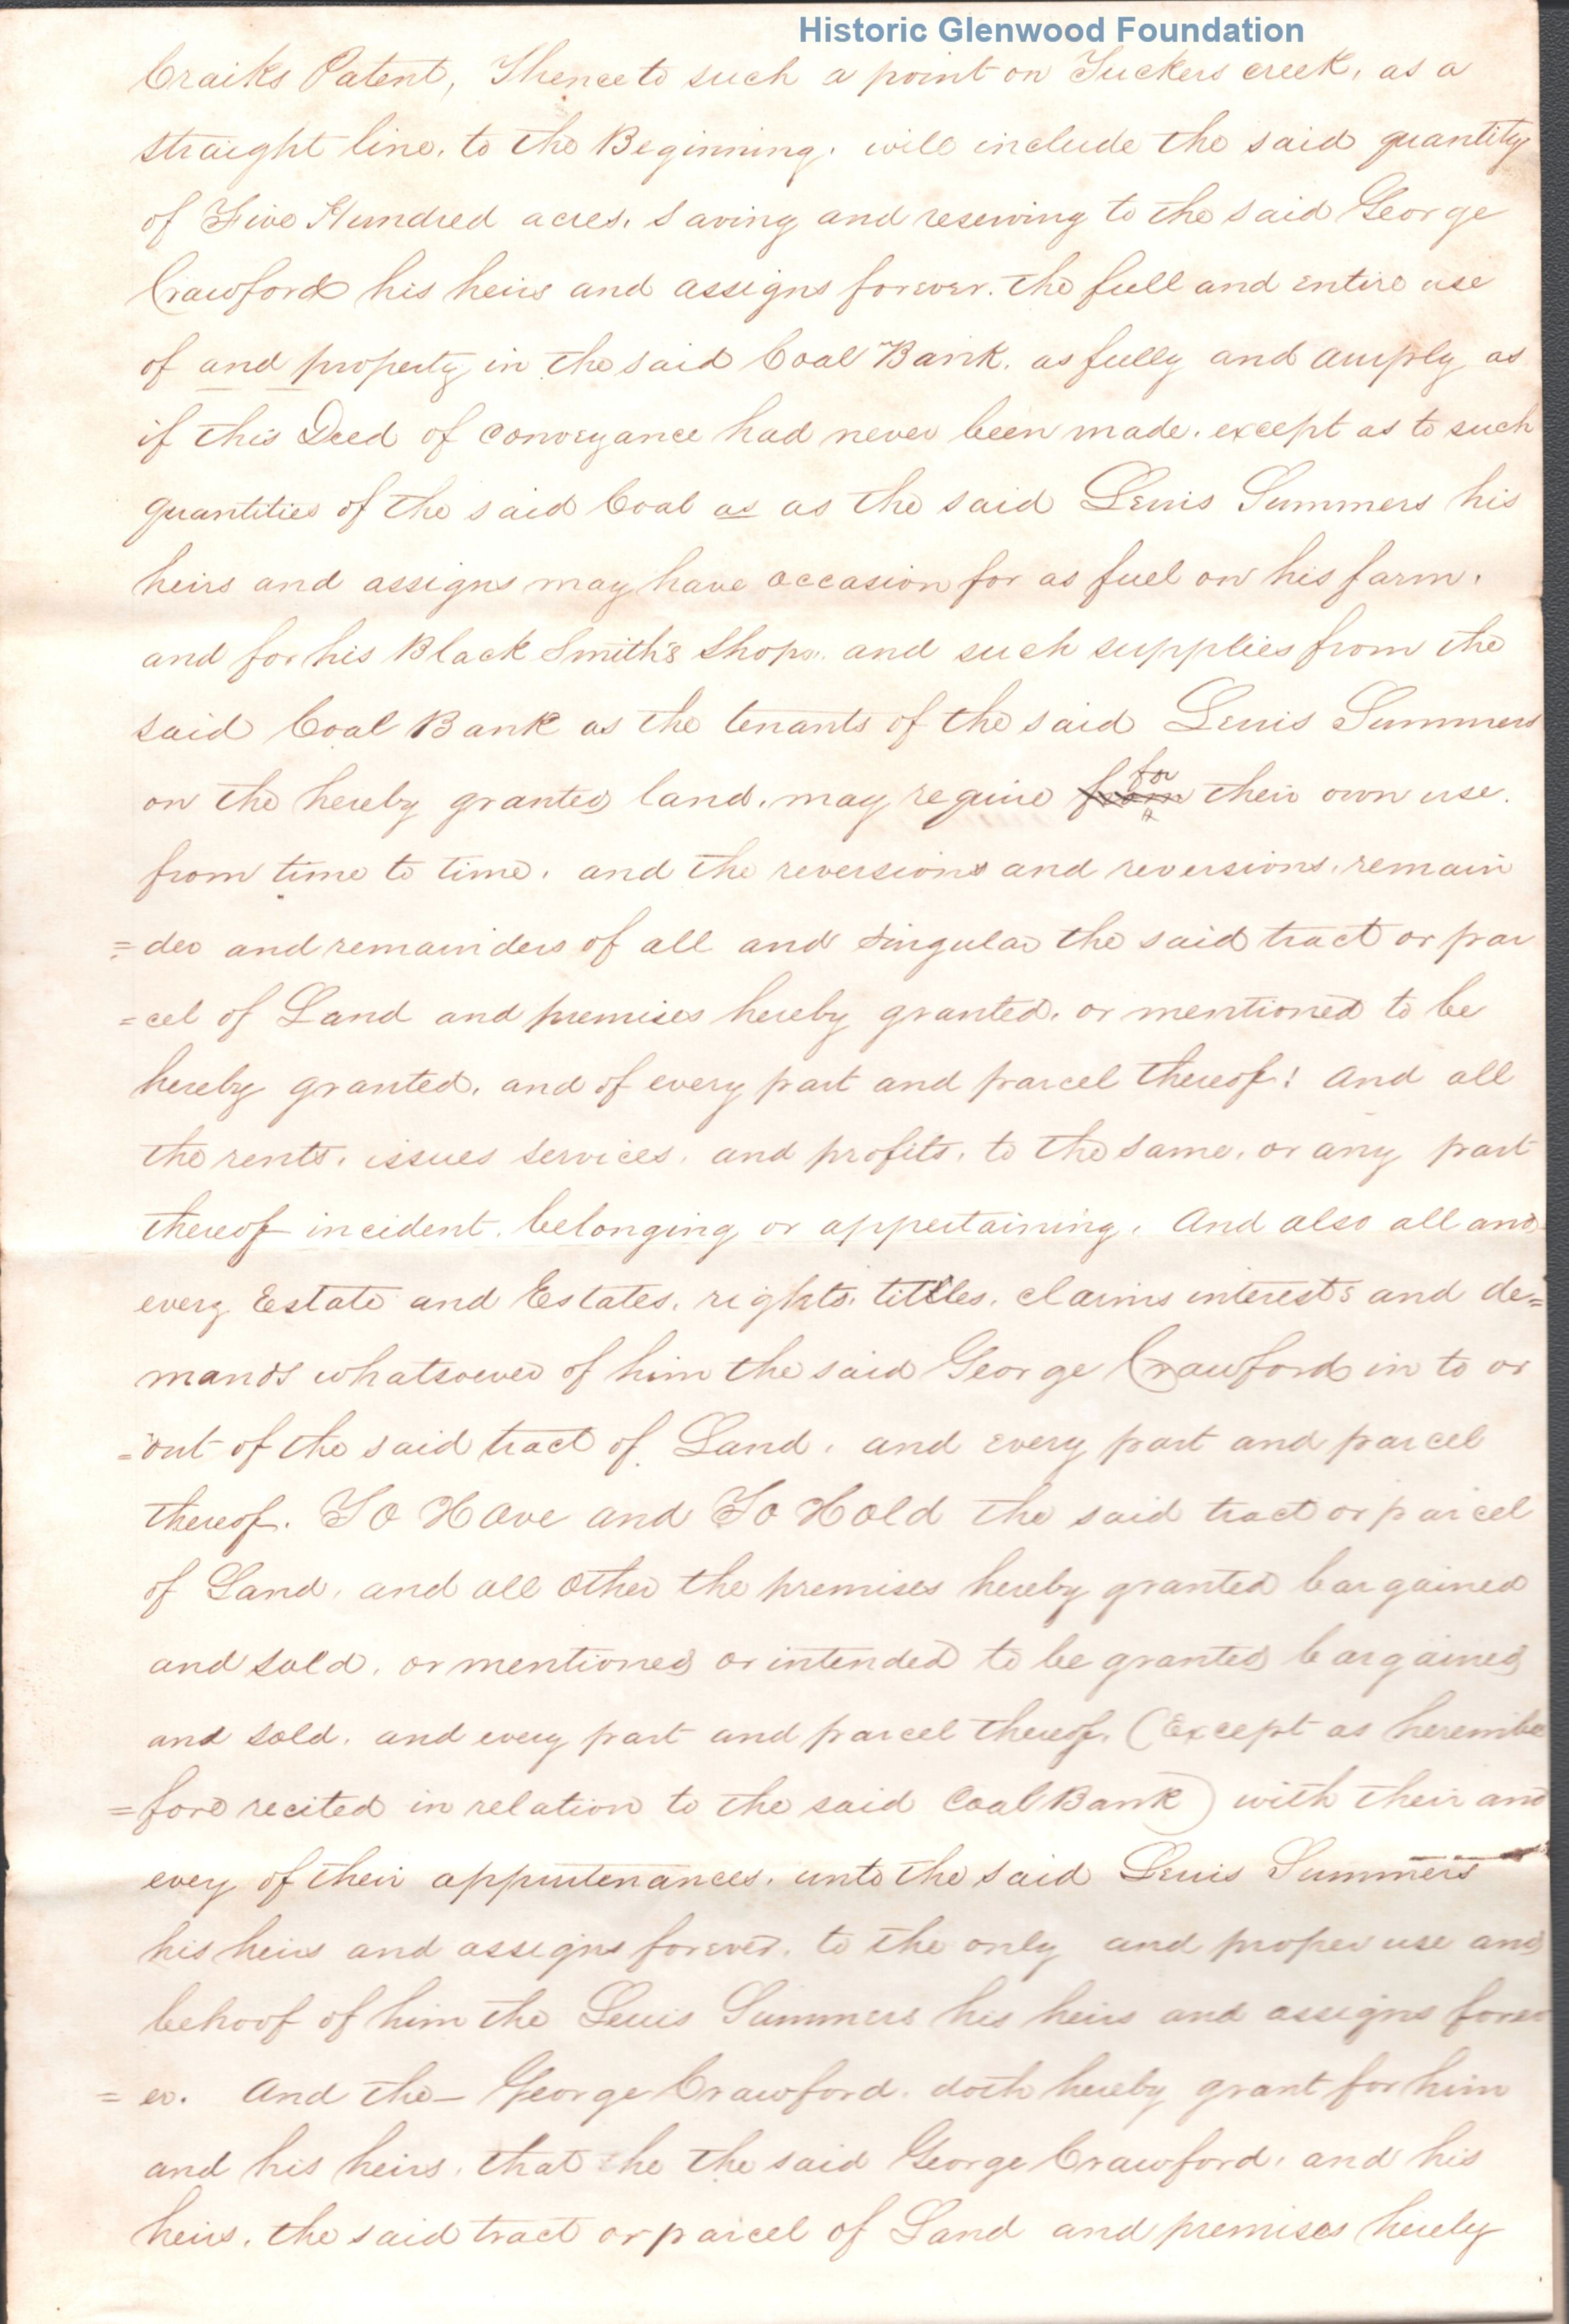 Historic Glenwood Foundation
Craiks Patent, Thence to such a point on Tuckers creek, as a
straight line, to the Beginning. will include the said quantity
of Five Hundred acres. Saving and reserving to the said George
Crawford his heirs and assigns forever. the full and entire use
of and property in the said Coal Bank. as fully and amply as
if this Deed of conveyance had never been made. except as to such
quantities of the said Coal as as the said Lewis Summers his
heirs and assigns may have occasion for as fuel on his farm.
and for his Black Smith's Shops. and such supplies from the
said Coal Bank as the tenants of the said Lewis Summers
on the hereby granted land, may require from for their own use.
from time to time. and the reversions and reversions, remain
=der and remainders of all and singular the said tract or par
=cel of Land and premises hereby granted, or mentioned to be
hereby granted, and of every part and parcel thereof! And all
the rents, issues services, and profits, to the same, or any part
thereof incident, belonging or appertaining. And also all and
every Estate and Estates, rights, tittles, claims interests and de=
mands whatsoever of him the said George Crawford in to or
=out of the said tract of Land, and every part and parcel
thereof. To Have and To Hold the said tract or parcel
of Land, and all other the premises hereby granted bargained
and sold, or mentioned or intended to be granted bargained
and sold, and every part and parcel thereof, (Except as hereinbe
=fore recited in relation to the said Coal Bank) with their and
every of their appurtenances, unto the said Lewis Summers
his heirs and assigns forever, to the only and proper use and
behoof of him the Lewis Summers his heirs and assigns forev
=er. And the George Crawford, doth hereby grant for him
and his heirs, that he the said George Crawford, and his
heirs, the said tract or parcel of Land and premises hereby